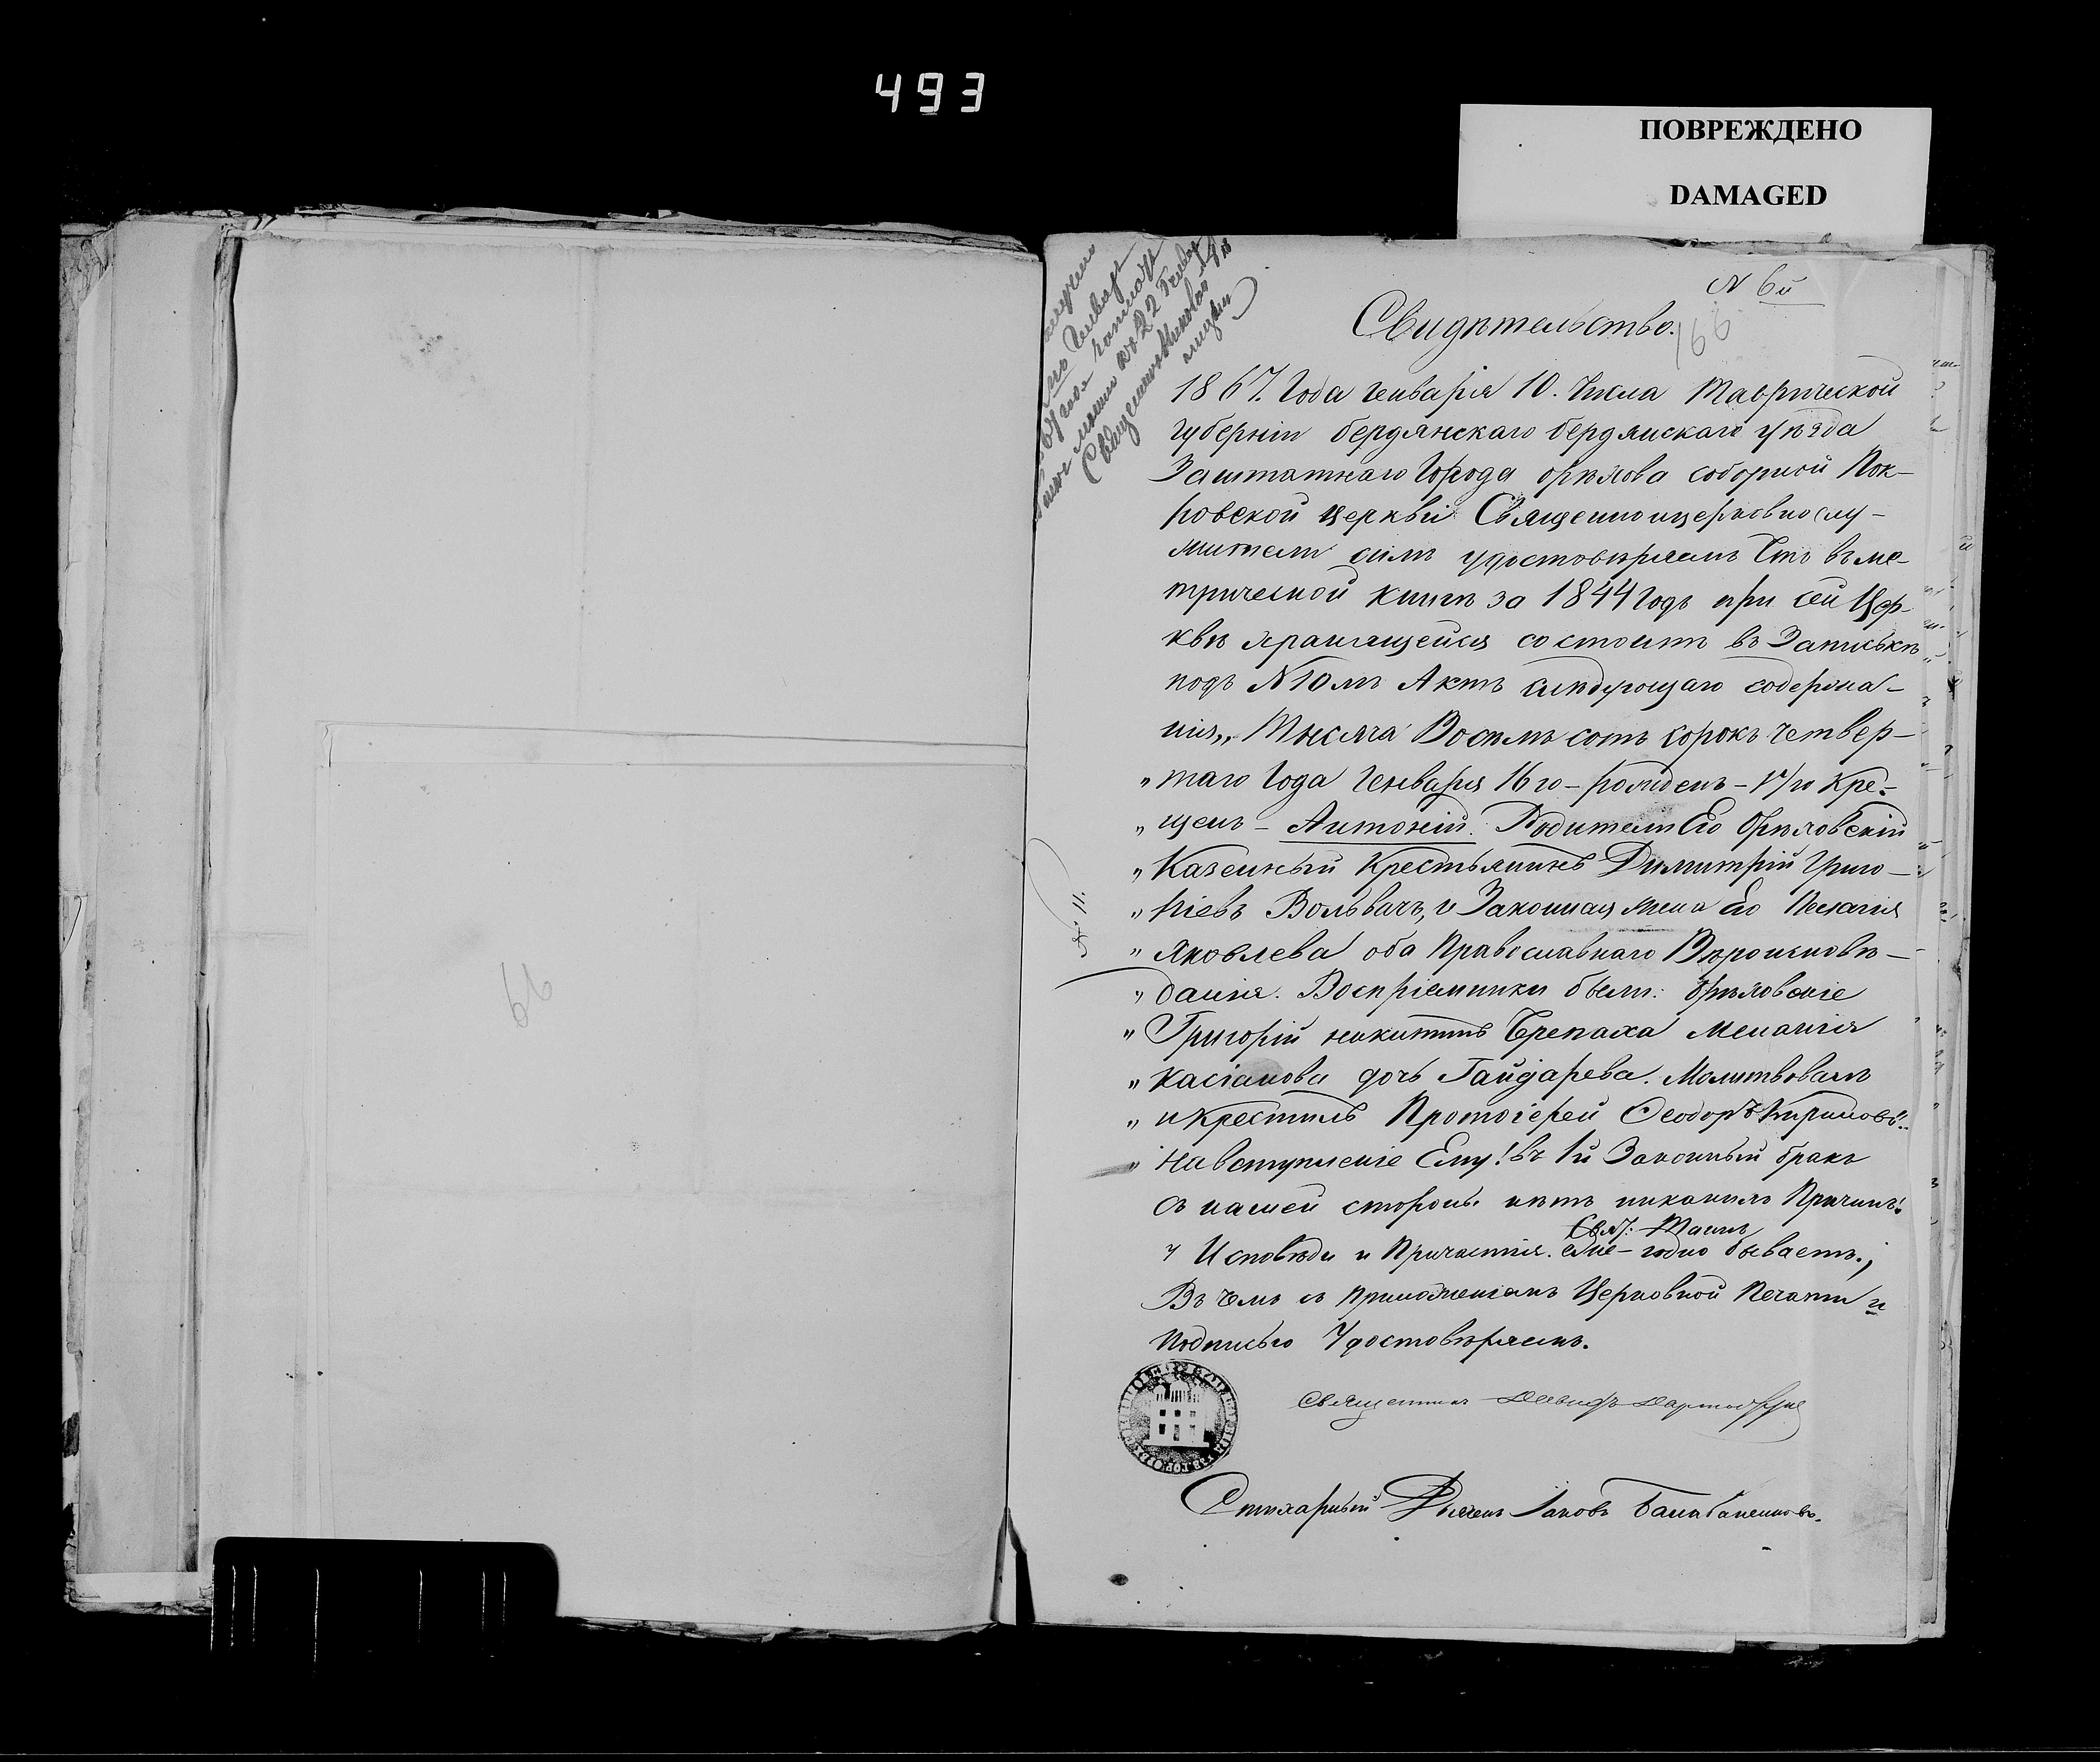 493
ПОВРЕЖДЕНО
DAMAGED
N 6й
Свидѣтельство.
69
1867. Года Генваріа 10. Числа Таврической
губерніи бердянскаго бердянскаго уѣзда
Заштатнаго Города орѣхова соборной Пок-
ровской церкви Священноицерковнослу-
жители симъ удостовѣряемъ Что въ ме-
трической книгѣ за 1844 Годъ при сей Цер-
квѣ хранящейся состоитъ въ Записькѣ
подъ N 10мъ Актъ слѣдующаго содержа-
нія„ Тысяча Восемь сотъ сорокъ четвер-
„ таго Года Генваря 16го - рожденъ - 17го Кре-
„ щенъ - Антоній. Родители Его Орѣховскій
„ Казенный Крестьянинъ Димитрій Григо-
„ ріевъ Вольвачъ, и Законная жена Его Пелагія
„ Яковлева оба Православнаго Вѣроисповѣ-
„ данія. Воспріемники были: орѣховскіе
„ Григорій никитинъ Черепаха Меланія
„ Касіанова дочь Гайдарева. Молитвовалъ
„ и крестилъ Протоіерей Феодоръ Кириловъ..
„ На вступленіе Ему! въ 1й Законный бракъ
съ нашей стороны нѣтъ никакихъ Причинъ!
Свят: Таинъ
У Исповѣди и Причастія. еже-годно бываетъ.;
Въ чемъ съ приложеніемъ Церковной Печати и
подписью Удостовѣряемъ.
Священникъ Давидъ
Стихарный Дьячекъ Іаковъ Балабаненковъ.
№ 11.
66